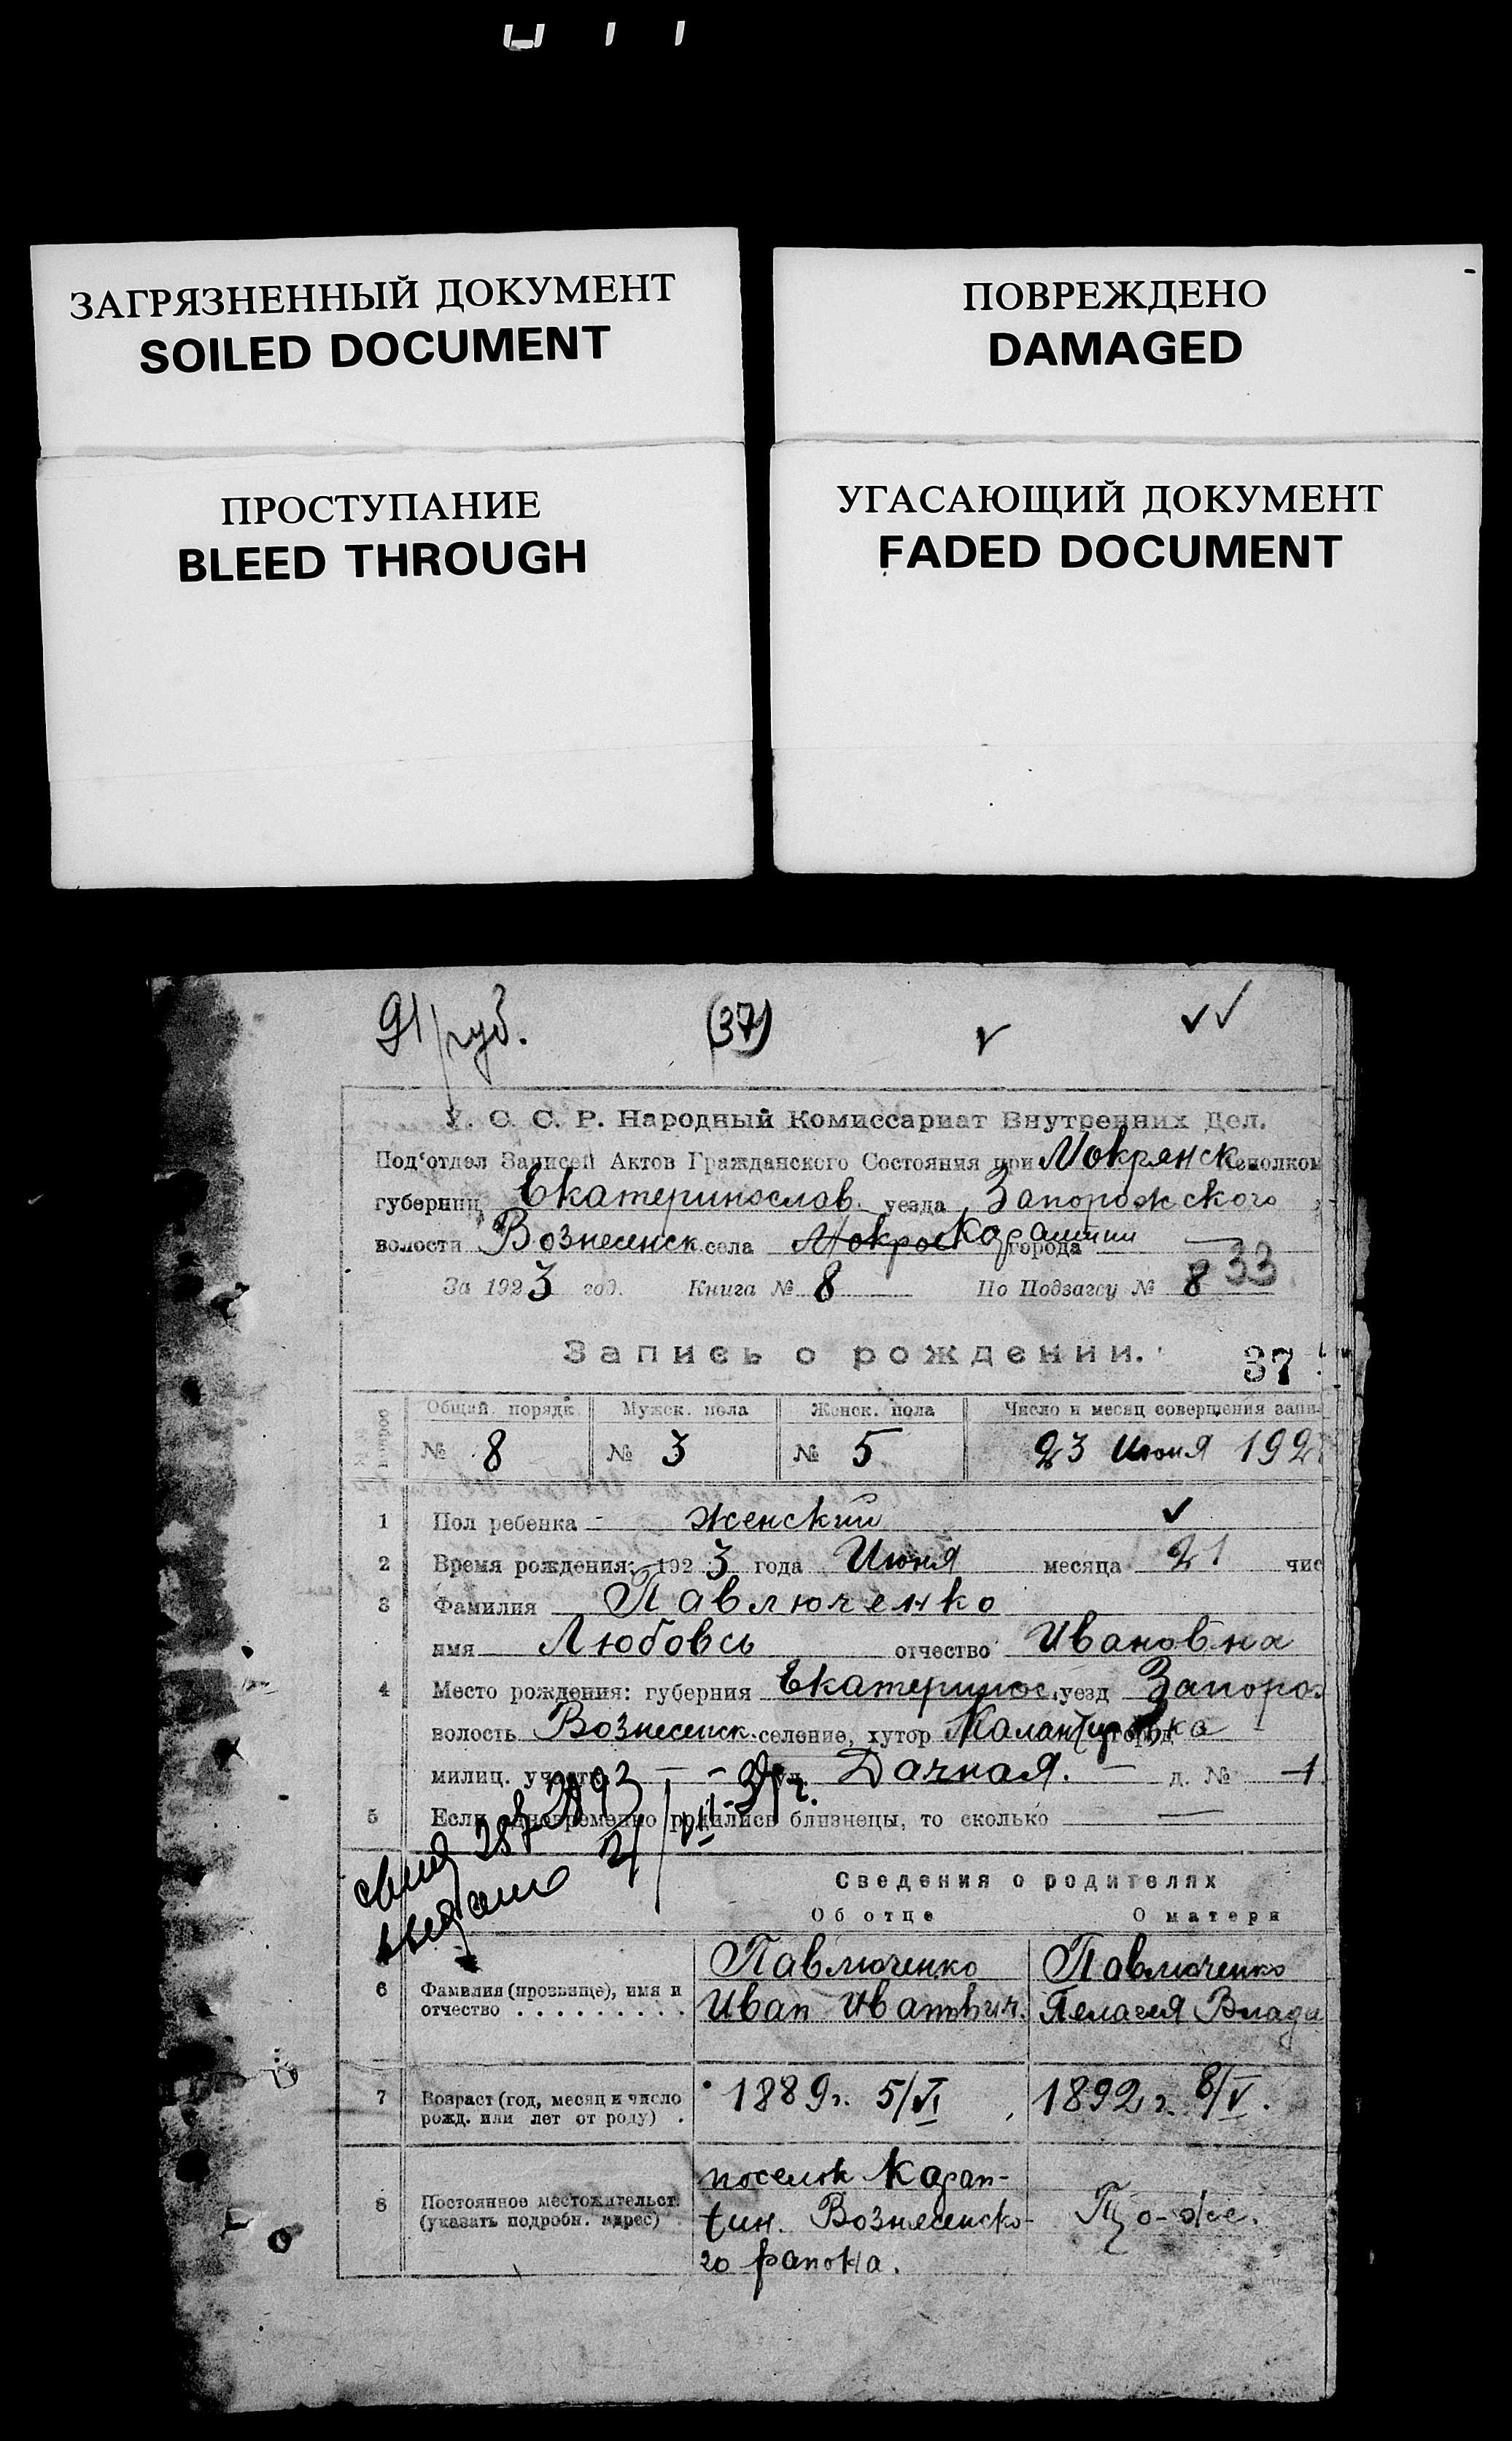 ЗАГРЯЗНЕННЫЙ ДОКУМЕНТ
SOILED DOCUMENT
ПОВРЕЖДЕНО
DAMAGED
ПРОСТУПАНИЕ
BLEED THROUGH
УГАСАЮЩИЙ ДОКУМЕНТ
FADED DOCUMENT
91 руб. (37)
У. С. С. Р. Народный Комиссариат Внутренних Дел.
Под'отдел Записей Актов Гражданского Состояния при Мокрянск. исполком
губернии Екатеринослав. уезда Запорожского
волости Вознесенск. села города
За 1923 год. Книга № 8 По Подзагсу № 8 33
Запись о рождении.
37
Общий порядк. Мужск. пола Женск. пола Число и месяц совершения запи
№ 8 № 3 № 5 23 Июня 192
1 Пол ребенка - женский
2 Время рождения: 1923 года Июня месяца 21 чис
3 Фамилия Павлюченко
имя Любовь отчество Ивановна
4 Место рождения: губерния Екатеринос. уезд Запорож
волость Вознесенск. селение, хутор город
милиц. участ ул. Дачная. д. № 1
5 Если одновременно родились близнецы, то сколько
Сведения о родителях
Об отце О матери
6 Фамилия (прозвище), имя и отчество
Павлюченко Павлюченко
Иван Иванович. Пелагея Влади
7 Возраст (год, месяц и число рожд. или лет от роду)
1889 г. 5/VI 1892 г. 8/V.
8 Постоянное местожительст. (указать подробн. адрес)
поселок Каран-
тин. Вознесенско-
го района.
То-же.